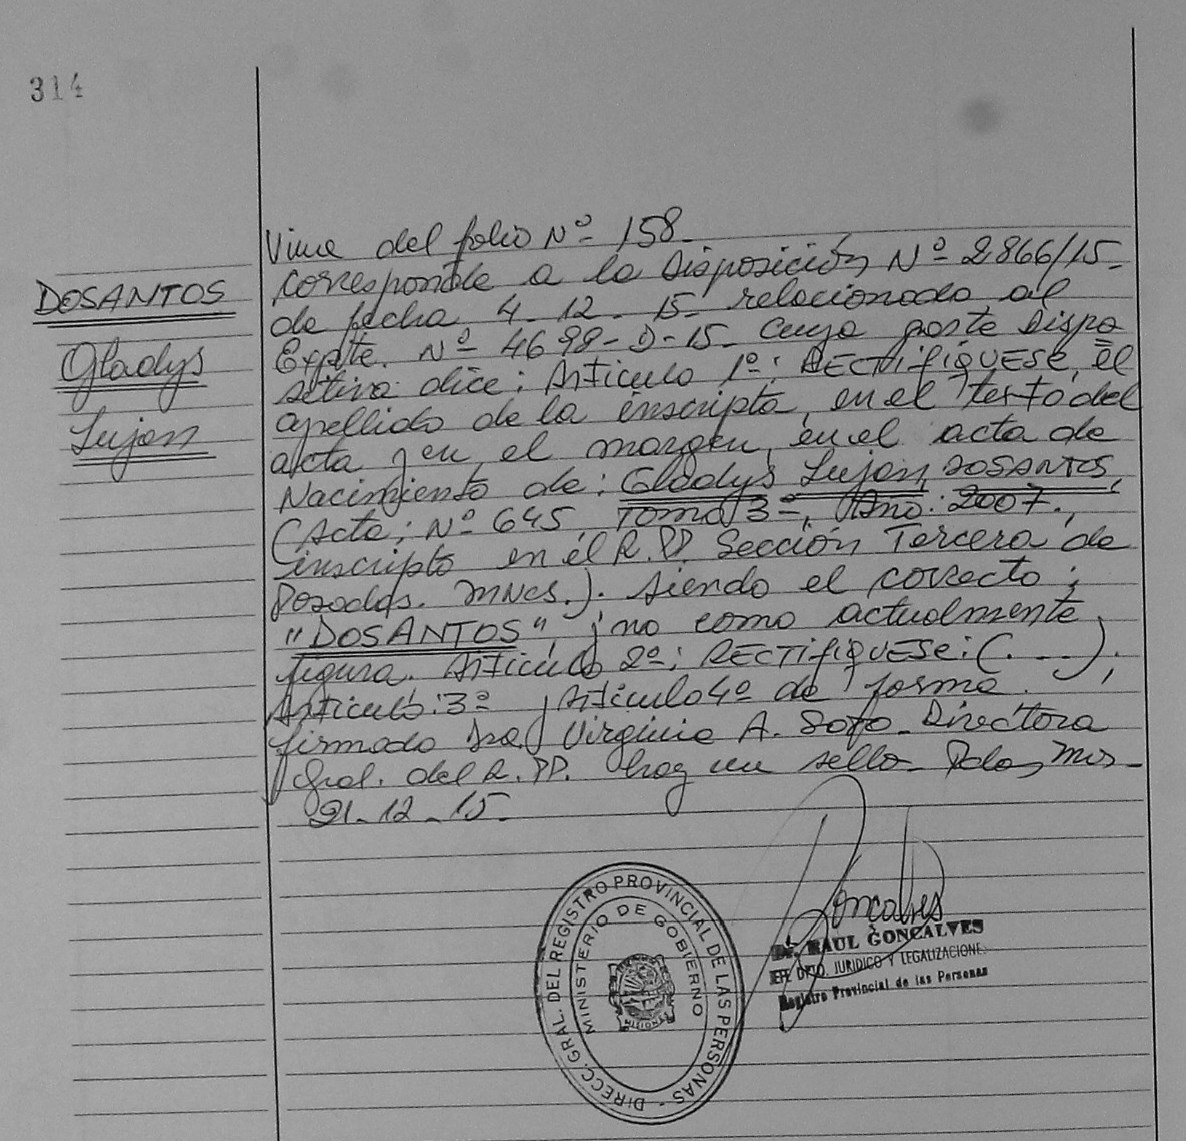 314
DOSANTOS
Gladys
Lujan
Viene del folio Nº 158.
corresponde a la Disposición Nº 2866/15-
de fecha 4-12-15- relacionado al
Expte. Nº 4698-D-15- cuya parte Dispo
sitiva dice: Articulo 1º: RECTIFIQUESE, el
apellido de la inscripta, en el texto del
acta y en el margen, en el acta de
Nacimiento de: Gladys Lujan DOSANTOS,
(Acta: Nº 645, Tomo 3º, Año: 2007.,
inscripta en el R.PP Sección Tercera de
Posadas. Mnes.). siendo el correcto:
"DOSANTOS", y no como actualmente
figura. Articulo 2º: RECTIFIQUESE: (. ___);
Articulo: 3º y Articulo 4º de forma.
firmado Dra. Virginia A. Soto. Directora
Gral. del R.PP. hay un sello- Pdas, Mns-
21-12-15-
DIRECC. GRAL. DEL REGISTRO PROVINCIAL DE LAS PERSONAS -
MINISTERIO DE GOBIERNO
MISIONES
Goncalves
Dr. RAUL GONCALVES
JEFE DPTO. JURIDICO Y LEGALIZACIONES
Registro Provincial de las Personas